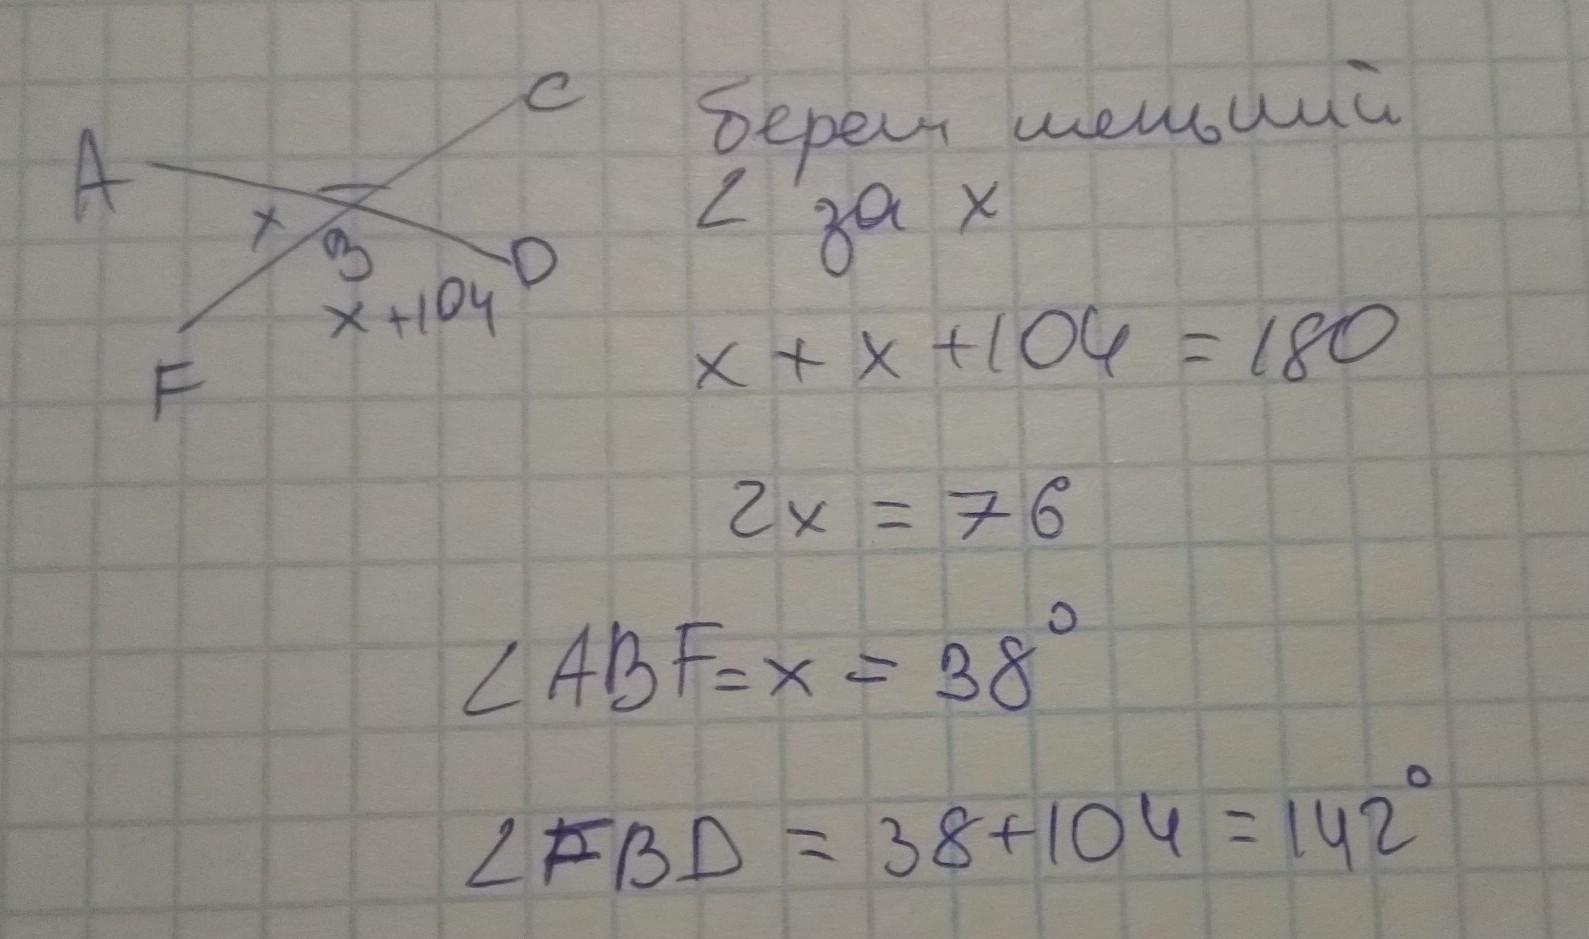 C
A
x
B
D
x+104
F
берем меньший
∠ за x
x + x + 104 = 180
2x = 76
∠ABF = x = 38°
∠FBD = 38+104 = 142°